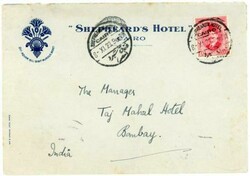 SHEPHEARD'S HOTEL
CAIRO
The Manager
Taj Mahal Hotel
Bombay.
India